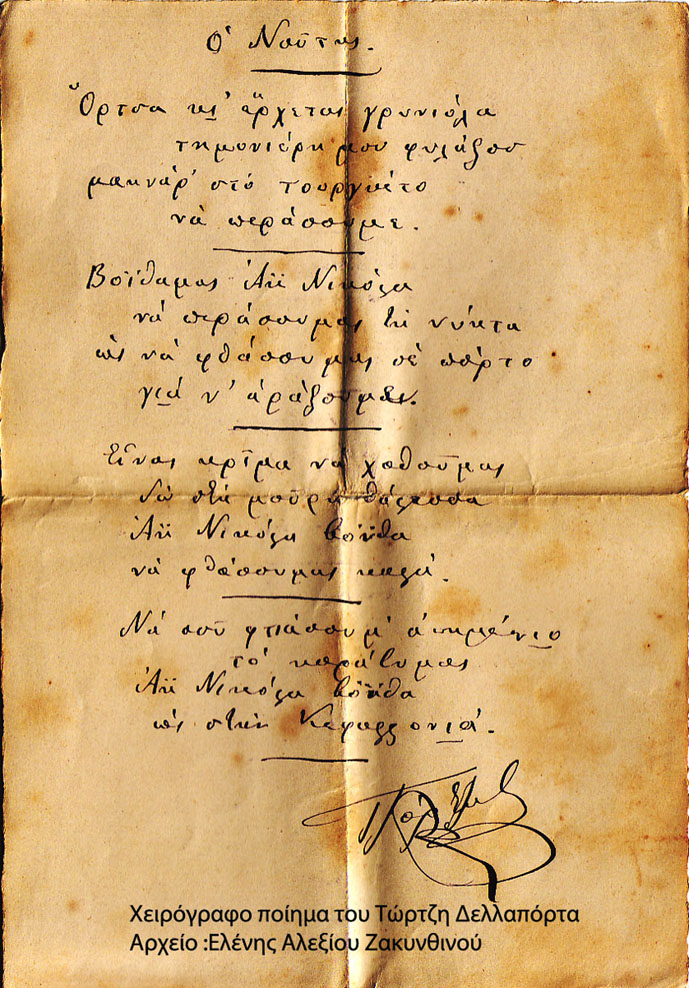 Ὁ Ναύτης.
Ὄρτσα κι' ἔρχεται γρυνιόλα
τημονιέρη μου φυλάξου
μακυάρ' στό τουργουέτο
νὰ περάσουμε.
Βοΐθαμας Ἁϊ Νικόλα
νά περάσουμας τή νύκτα
ὡς νά φθάσουμας σέ πόρτο
γιά ν' ἀράξουμεν.
Εἶναι κρῖμα νά χαθοῦμας
δῶ στή μαύρη θάλασσα
Ἁϊ Νικόλα βοΐθα
νά φθάσουμας καλά.
Νά σοῦ φτιάσουμ' ἀσημένιο
τό καράβυμας
Ἁϊ Νικόλα βοΐθα
ὡς στήν Κεφαλλονιά.
Χειρόγραφο ποίημα του Τώρτζη Δελλαπόρτα
Αρχείο :Ελένης Αλεξίου Ζακυνθινού